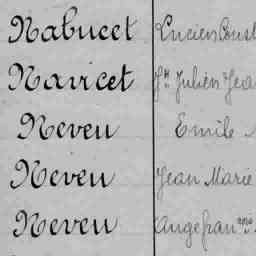 Nabucet Lucien Const
Navicet Jh Julien Jea
Neveu Emile
Neveu Jean Marie
Neveu Ange fran